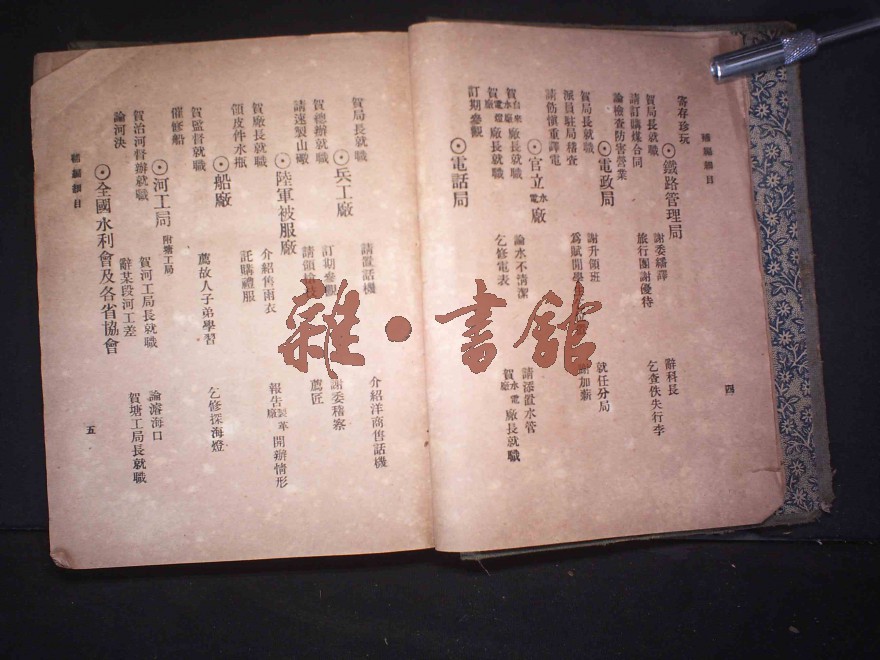 續編類目
四
寄存珍玩
⊙鐵路管理局
賀局長就職
謝委繙譯
辭科長
請訂購煤合同
旅行團謝優待
乞查佚失行李
論檢查防害營業
⊙電政局
賀局長就職
謝升領班
就任分局
派員駐局稽查
請仿愼重譯電
⊙官立水電廠
賀自來水廠廠長就職
論水不清潔
請添置水管
賀電燈廠廠長就職
乞修電表
賀水電廠廠長就職
⊙電話局
訂期參觀
賀局長就職
請置話機
介紹洋商售話機
⊙兵工廠
賀總辦就職
訂期參觀
謝委稽察
請速製山礮
薦匠
⊙陸軍被服廠
賀廠長就職
介紹售雨衣
報告製革廠開辦情形
領皮件水瓶
託購禮服
⊙船廠
賀監督就職
薦故人子弟學習
乞修探海燈
催修船
⊙河工局 附塘工局
賀治河督辦就職
賀河工局長就職
論濬海口
論河決
辭某段河工差
賀塘工局長就職
⊙全國水利會及各省協會
續編類目
五
雜·書館